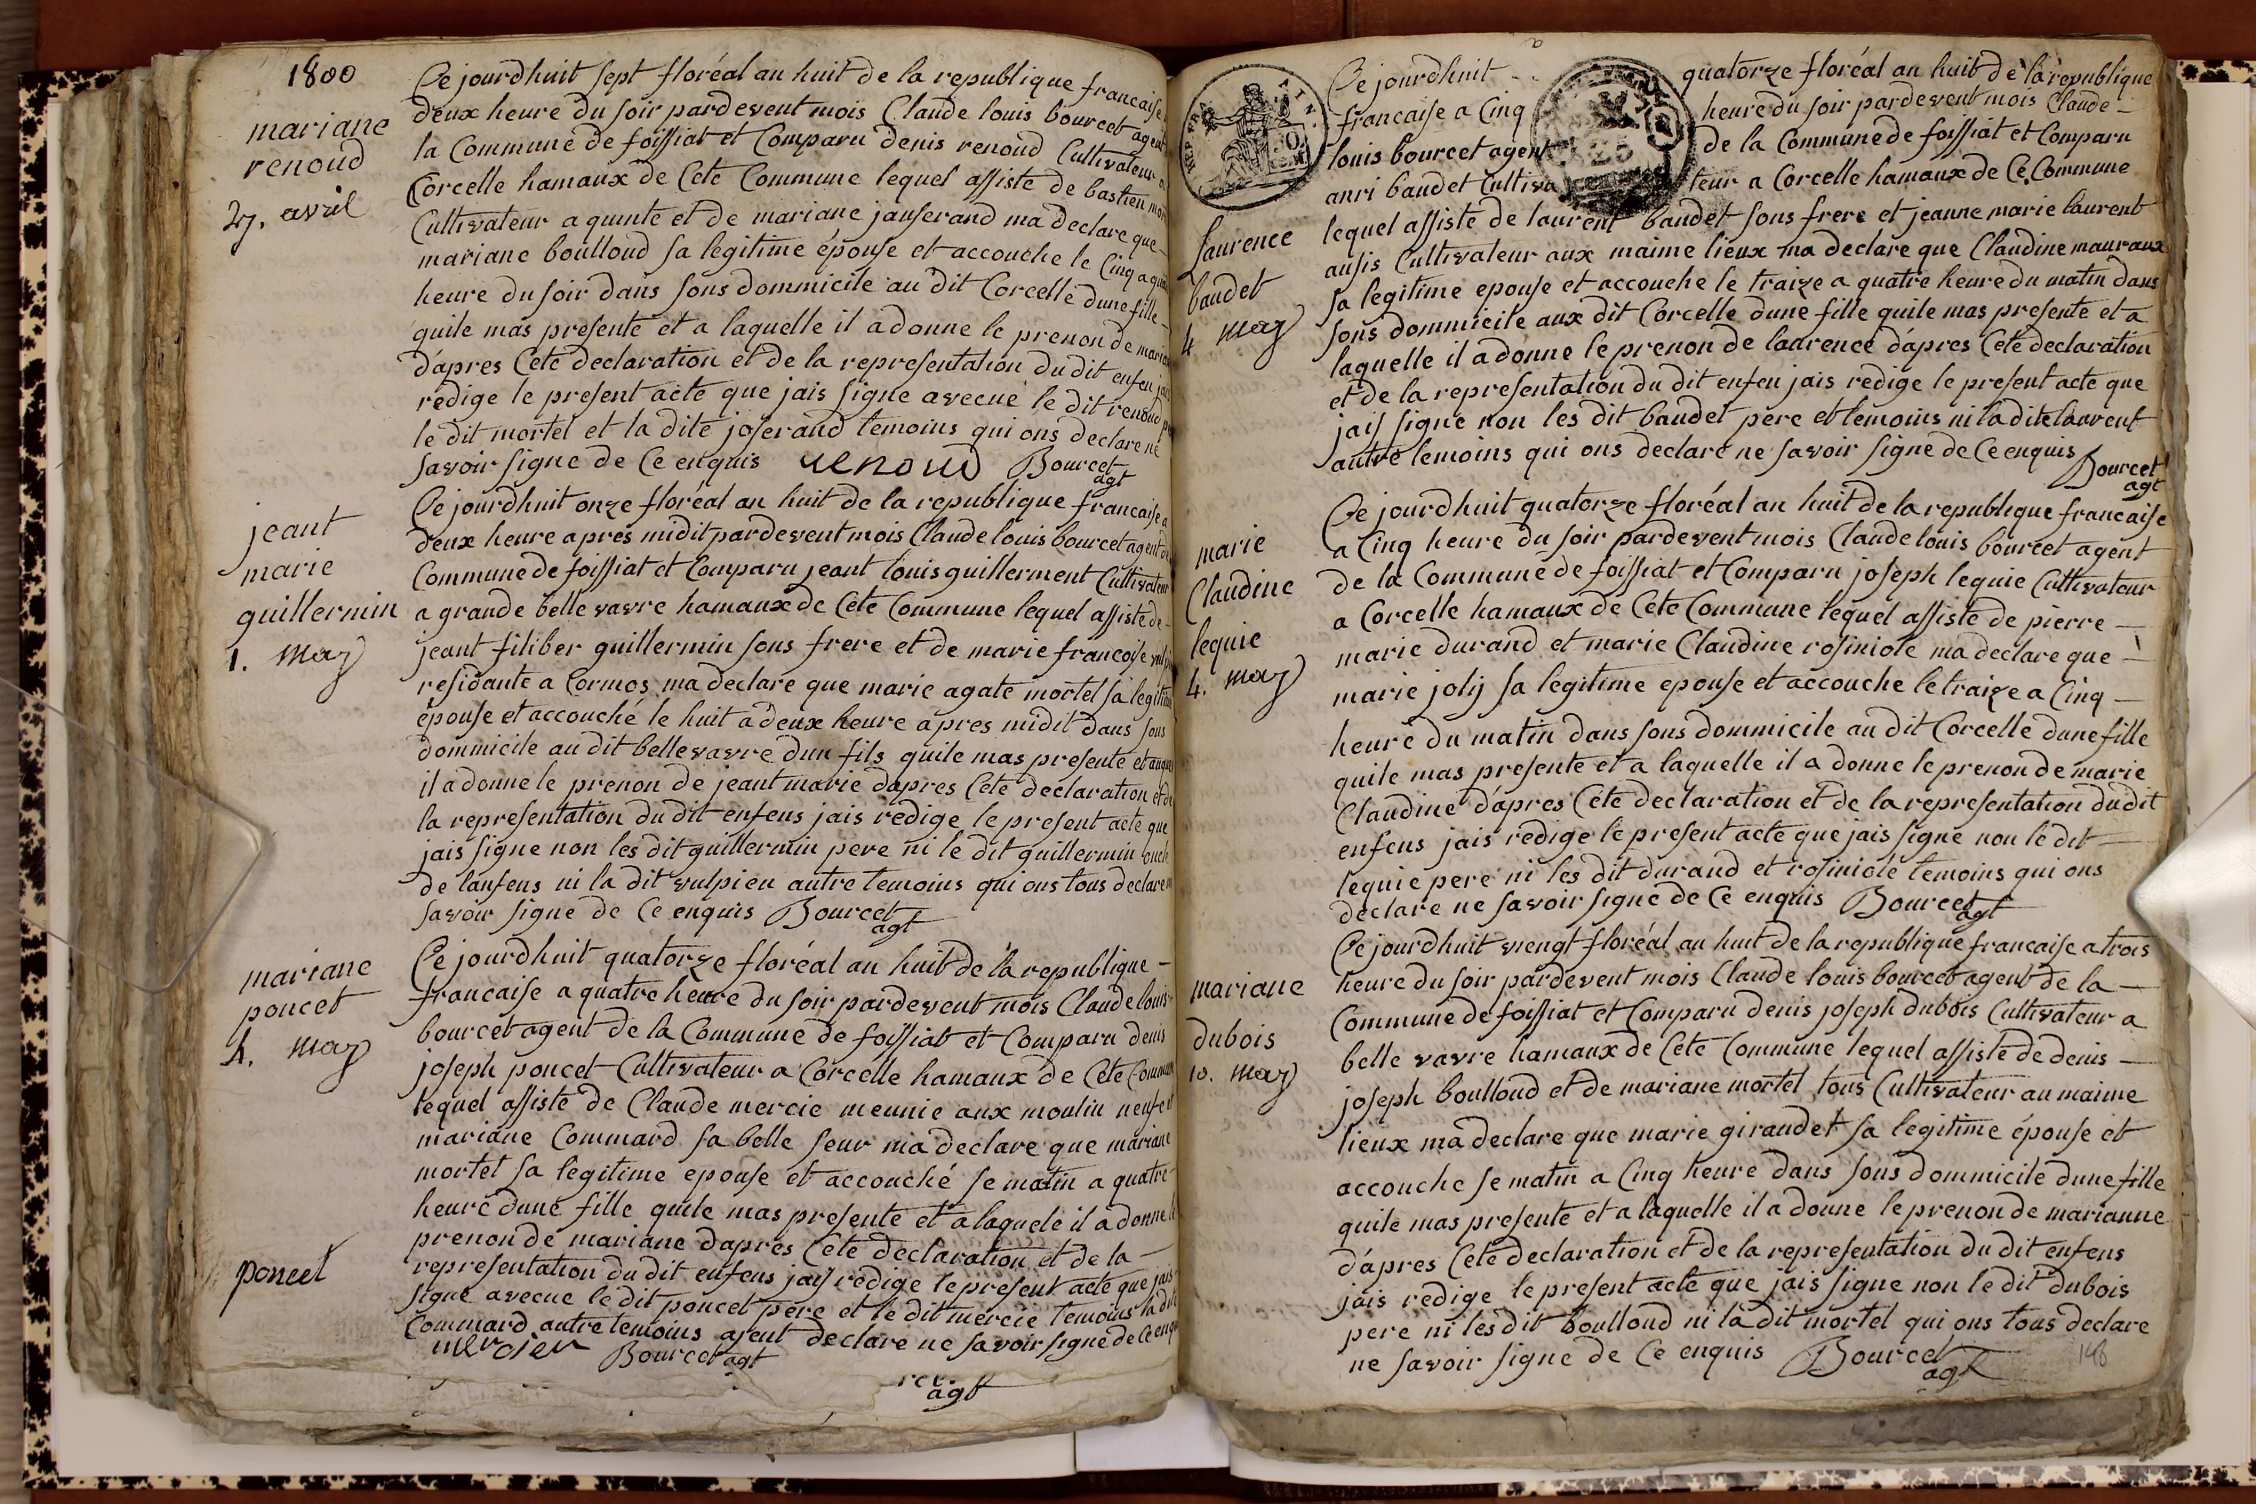 1800
mariane
renoud
27. avril
Ce jourdhuit sept floréal an huit de la republique francaise
deux heure du soir pardevent mois Claude louis bourcet agent
la Commune de foissiat et Comparu denis renoud Cultivateur a
Corcelle hamaux de Cete Commune lequel assiste de bastien
Cultivateur a quinte et de mariane jauserand ma declare que
mariane boulloud sa legitime épouse et accouche le Cinq a
heure du soir dans sons dommicile au dit Corcelle dune fille
quile mas presente et a laquelle il a donne le prenon de
d'apres Cete declaration et de la representation du dit enfen
redige le present acte que jais signe avecue le dit renoud
le dit mortel et la dite joserand temoins qui ons declare ne
savoir signe de Ce enquis renoud Bourcet
agt
jeant
marie
guillermin
1. may
Ce jourdhuit onze floréal an huit de la republique francaise a
deux heure apres midit pardevent mois Claude louis bourcet agent
Commune de foissiat et Comparu jeant louis guillerment Cultivateur
a grande belle vavre hamaux de Cete Commune lequel assiste de
jeant filiber guillermin sons frere et de marie francoise
residante a Cormos ma declare que marie agate mortel sa
épouse et accouché le huit a deux heure apres midit dans sons
dommicile au dit belle vavre dun fils quile mas presente et
il a donne le prenon de jeant marie dapres Cete declaration et de
la representation du dit enfens jais redige le present acte que
jais signe non les dit guillermin pere ni le dit guillermin
de lanfens ni la dit vulpieu autre temoins qui ons tous declare
savoir signe de Ce enquis Bourcet
agt
mariane
poncet
4. may
Ce jourdhuit quatorze floréal an huit de la republique
francaise a quatre heure du soir pardevent mois Claude louis
bourcet agent de la Commune de foissiat et Comparu denis
joseph poncet Cultivateur a Corcelle hamaux de Cete Commune
lequel assiste de Claude mercie meunie aux moulin neuf et
mariane Commard sa belle seur ma declare que mariane
mortel sa legitime epouse et accouché se matin a quatre
heure dune fille quile mas presente et a laquele il a donne
prenon de mariane dapres Cete declaration et de la
representation du dit enfens jais redige le present acte que jais
signe avecue le dit poncet pere et le dit mercie temoins la dite
Commard autre temoins ayent declare ne savoir signe de Ce
poncet
mercier Bourcet agt
agt
laurence
baudet
4 may
Ce jourdhuit quatorze floréal an huit de la republique
francaise a Cinq heure du soir pardevent mois Claude
louis bourcet agent de la Commune de foissiat et Comparu
anri baudet Cultiva teur a Corcelle hamaux de Ce Commune
lequel assiste de laurent baudet sons frere et jeanne marie laurent
ausis Cultivateur aux maime lieux ma declare que Claudine mauraux
sa legitime epouse et accouche le traize a quatre heure du matin dans
sons dommicile aux dit Corcelle dune fille quile mas presente et a
laquelle il a donne le prenon de laurence d'apres Cete declaration
et de la representation du dit enfen jais redige le present acte que
jais signe non les dit baudet pere et temoins ni la dite laurent
autre temoins qui ons declare ne savoir signe de Ce enquis
Bourcet
agt
marie
Claudine
lequie
4. may
Ce jourdhuit quatorze floréal an huit de la republique francaise
a Cinq heure du soir pardevent mois Claude louis bourcet agent
de la Commune de foissiat et Comparu joseph lequie Cultivateur
a Corcelle hamaux de Cete Commune lequel assiste de pierre
marie durand et marie Claudine rosiniole ma declare que
marie jolij sa legitime epouse et accouche le traize a Cinq
heure du matin dans sons dommicile au dit Corcelle dune fille
quile mas presente et a laquelle il a donne le prenon de marie
Claudine d'apres Cete declaration et de la representation du dit
enfens jais redige le present acte que jais signe non le dit
lequie pere ni les dit durand et rosiniole temoins qui ons
declare ne savoir signe de Ce enquis Bourcet
agt
mariane
dubois
10. may
Ce jourdhuit viengt floréal an huit de la republique francaise a trois
heure du soir pardevent mois Claude louis bourcet agent de la
Commune de foissiat et Comparu denis joseph dubois Cultivateur a
belle vavre hamaux de Cete Commune lequel assiste de denis
joseph boulloud et de mariane mortel tous Cultivateur au maime
lieux ma declare que marie giraudet sa legitime épouse et
accouche se matin a Cinq heure dans sons dommicile dune fille
quile mas presente et a laquelle il a donne le prenon de marianne
d'apres Cete declaration et de la representation du dit enfens
jais redige le present acte que jais signe non le dit dubois
pere ni les dit boulloud ni la dit mortel qui ons tous declare
ne savoir signe de Ce enquis Bourcet
agt
148